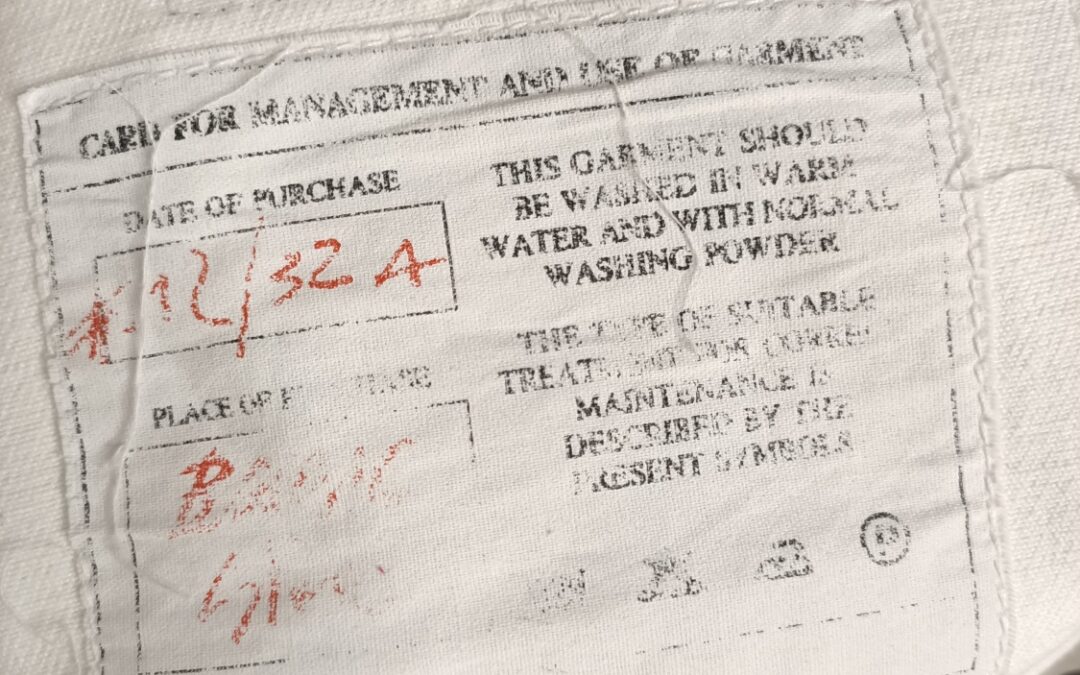 CARD FOR MANAGEMENT AND USE OF GARMENT
DATE OF PURCHASE
12/32 A
PLACE OF
THIS GARMENT SHOULD
BE WASHED IN WARM
WATER AND WITH NORMAL
WASHING POWDER
THE TYPE OF SUITABLE
TREATMENT FOR CORREC
MAINTENANCE IS
DESCRIBED BY THE
PRESENT SYMBOLS